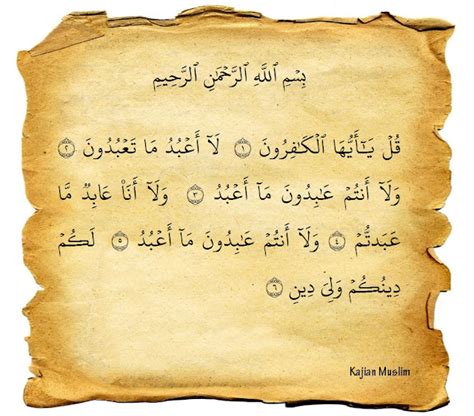 بِسْمِ ٱللَّهِ ٱلرَّحْمَٰنِ ٱلرَّحِيمِ
قُلْ يَٰٓأَيُّهَا ٱلْكَٰفِرُونَ ١ لَآ أَعْبُدُ مَا تَعْبُدُونَ ٢
وَلَآ أَنتُمْ عَٰبِدُونَ مَآ أَعْبُدُ ٣ وَلَآ أَنَا۠ عَابِدٌ مَّا
عَبَدتُّمْ ٤ وَلَآ أَنتُمْ عَٰبِدُونَ مَآ أَعْبُدُ ٥ لَكُمْ
دِينُكُمْ وَلِىَ دِينِ ٦
Kajian Muslim